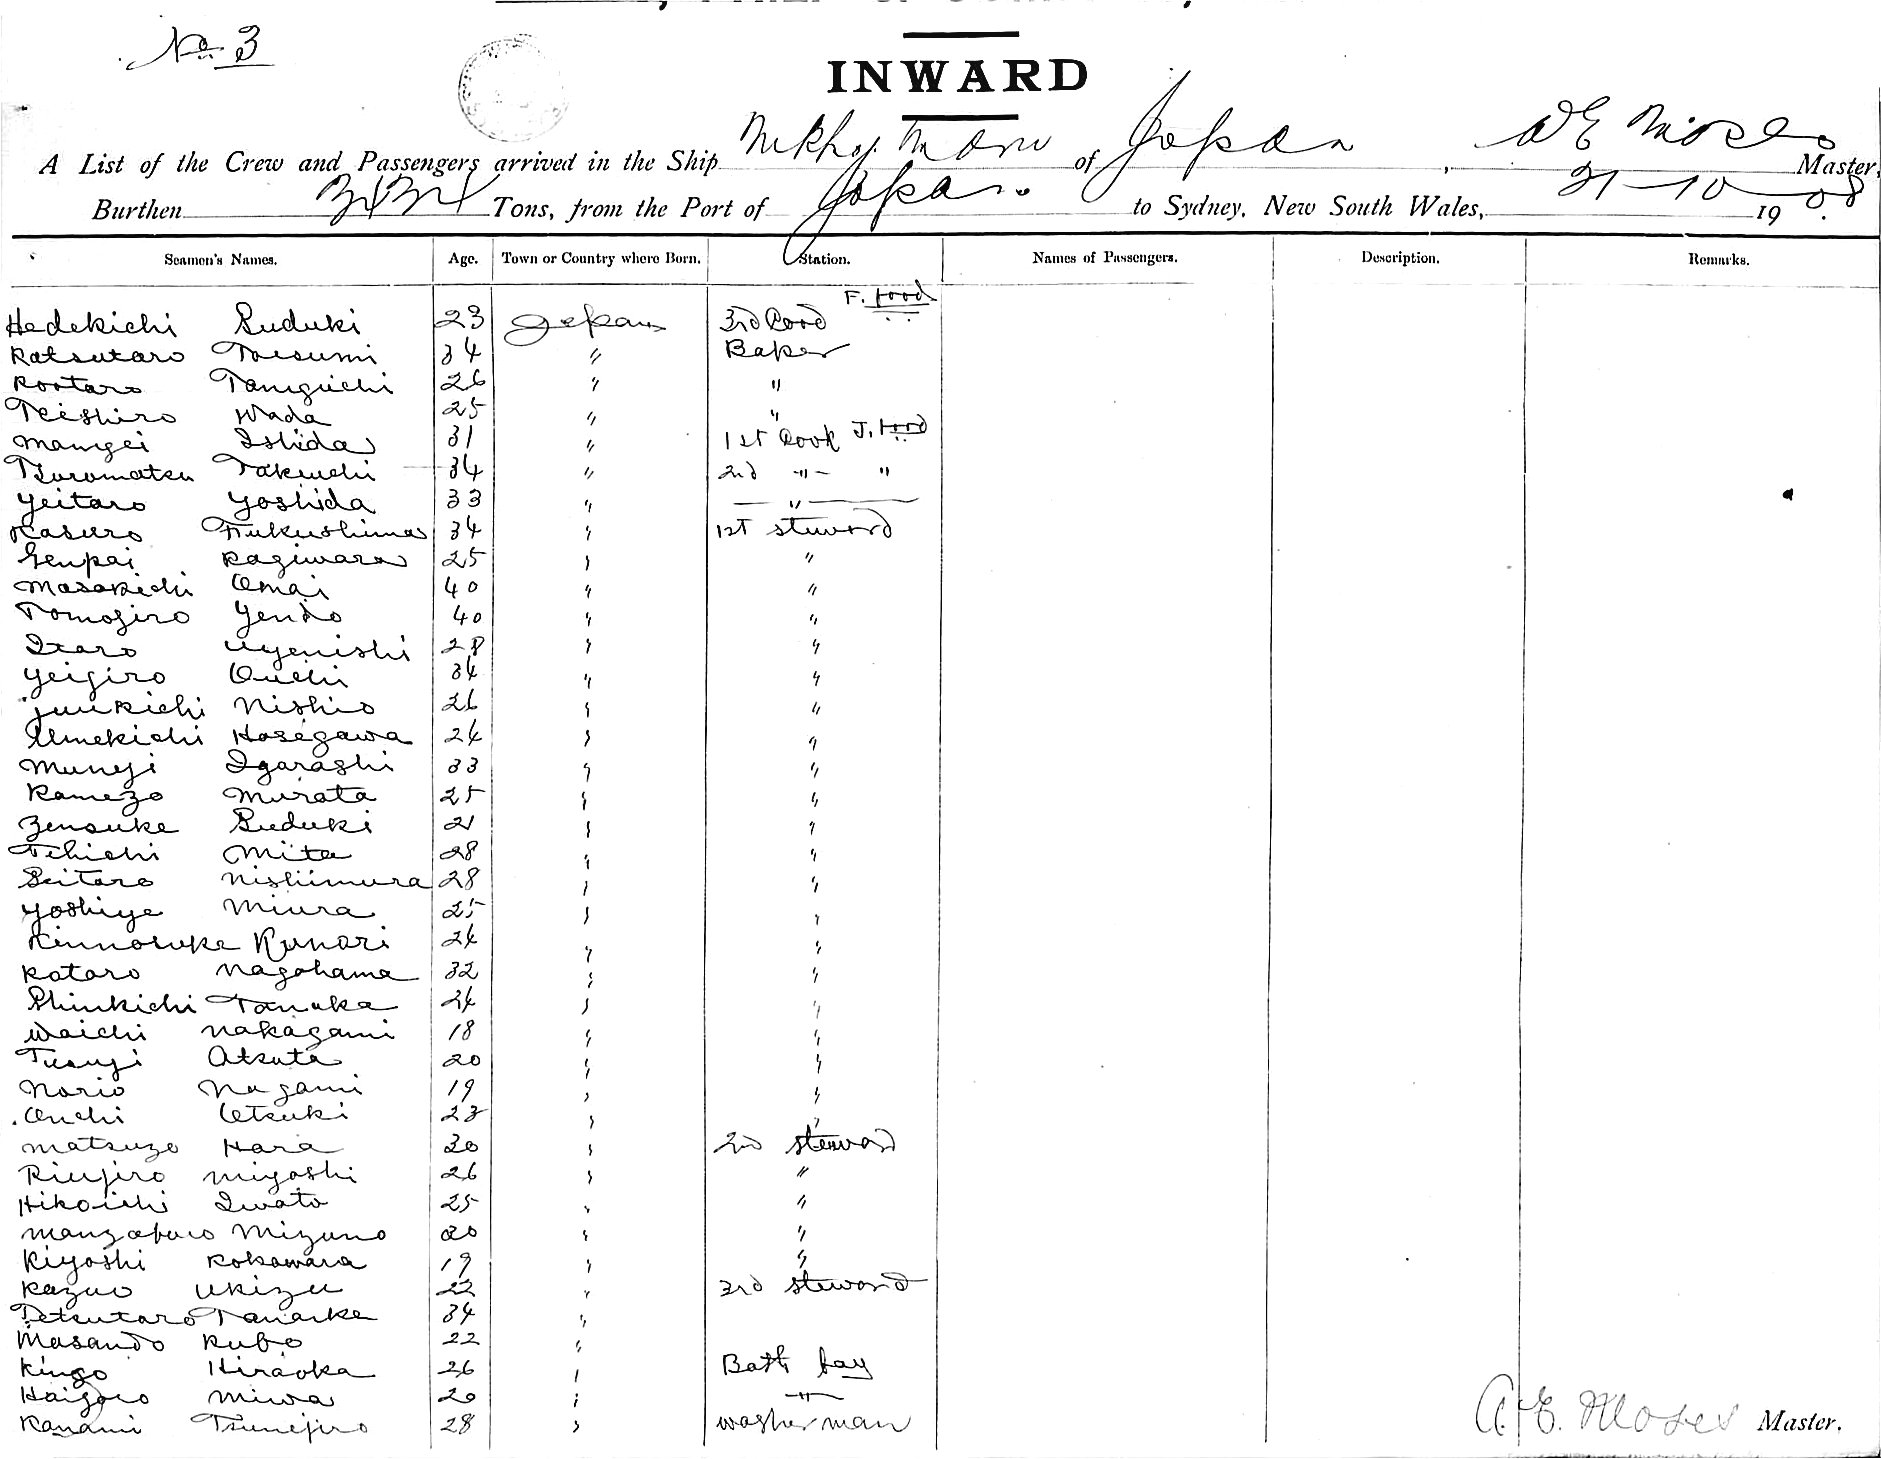 No 3
INWARD
A List of the Crew and Passengers arrived in the Ship Maru of Japan, A E Moses Master,
Burthen Tons, from the Port of Japan to Sydney, New South Wales, 21-10-1908.
Seamen's Names. Age. Town or Country where Born. Station. Names of Passengers. Description. Remarks.
F. food
Hedekichi Suduki 23 Japan 3rd Cook
Katsutaro Toesumi 34 " Baker
Kootaro Taniguchi 26 " "
Teishiro Wada 25 " "
Manyei Ishida 31 " 1st Cook J. food
Tsuromatsu Takeuchi 34 " 2nd " "
Yeitaro Yoshida 33 " "
Kasuro Fukushima 34 " 1st steward
Genpai Kagiwara 25 " "
Masakichi Omai 40 " "
Tomojiro Yendo 40 " "
Itaro Uyenishi 28 " "
Yeigiro Ouchi 34 " "
Junkichi Nishio 26 " "
Umekichi Hasegawa 24 " "
Munyi Igarashi 33 " "
Kamezo Murata 25 " "
Zensuke Suduki 21 " "
Tehichi Mita 28 " "
Seitaro Nishimura 28 " "
Yoshiye Miura 25 " "
Kinnosuke Kunari 24 " "
Kotaro Nagahama 32 " "
Shinkichi Tanaka 24 " "
Waichi Nakagami 18 " "
Tsunji Atsuta 20 " "
Norio Nagami 19 " "
Onchi Otsuki 23 " "
Matsuzo Hara 30 " 2nd steward
Riujiro Miyoshi 26 " "
Hikoichi Iwato 25 " "
Manzaburo Mizuno 20 " "
Kiyoshi Kokawara 19 " "
Kazuo Ukizu 22 " 3rd steward
Tetsutaro Tanaka 34 "
Masando Kubo 22 "
Kingo Hiraoka 26 " Bath boy
Haigoro Miwa 20 " "
Kanami Tsunejiro 28 " washerman
A. E. Moses Master.